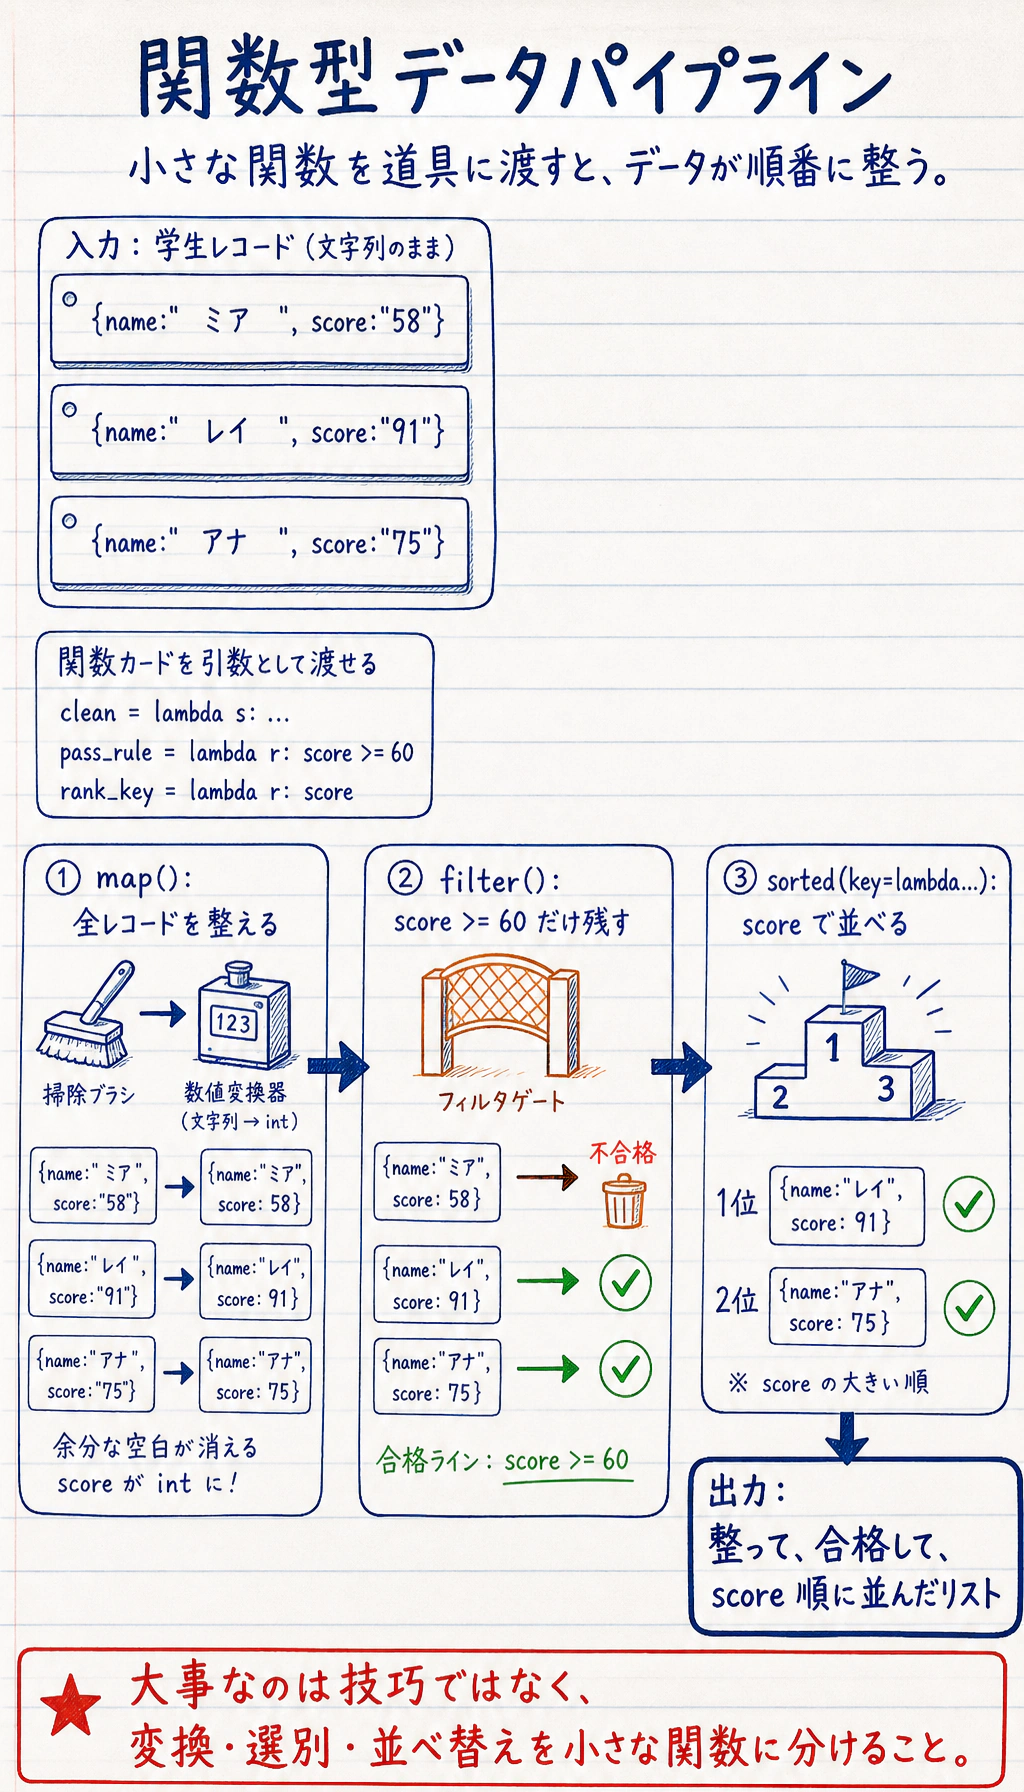 関数型データパイプライン
小さな関数を道具に渡すと、データが順番に整う。
入力：学生レコード（文字列のまま）
{name:"　ミア　", score:"58"}
{name:"　レイ　", score:"91"}
{name:"　アナ　", score:"75"}
関数カードを引数として渡せる
clean = lambda s: ...
pass_rule = lambda r: score >= 60
rank_key = lambda r: score
① map():
全レコードを整える
掃除ブラシ
123
数値変換器
（文字列 → int）
{name:" ミア",
score:"58"}
{name:"ミア",
score: 58}
{name:"レイ ",
score:"91"}
{name:"レイ",
score: 91}
{name:"アナ ",
score:"75"}
{name:"アナ",
score: 75}
余分な空白が消える
score が int に！
② filter():
score >= 60 だけ残す
フィルタゲート
{name:"ミア",
score: 58}
不合格
{name:"レイ",
score: 91}
{name:"アナ",
score: 75}
合格ライン：score >= 60
③ sorted(key=lambda...):
score で並べる
1
2
3
1位
{name:"レイ",
score: 91}
2位
{name:"アナ",
score: 75}
※ score の大きい順
出力：
整って、合格して、
score 順に並んだリスト
大事なのは技巧ではなく、
変換・選別・並べ替えを小さな関数に分けること。